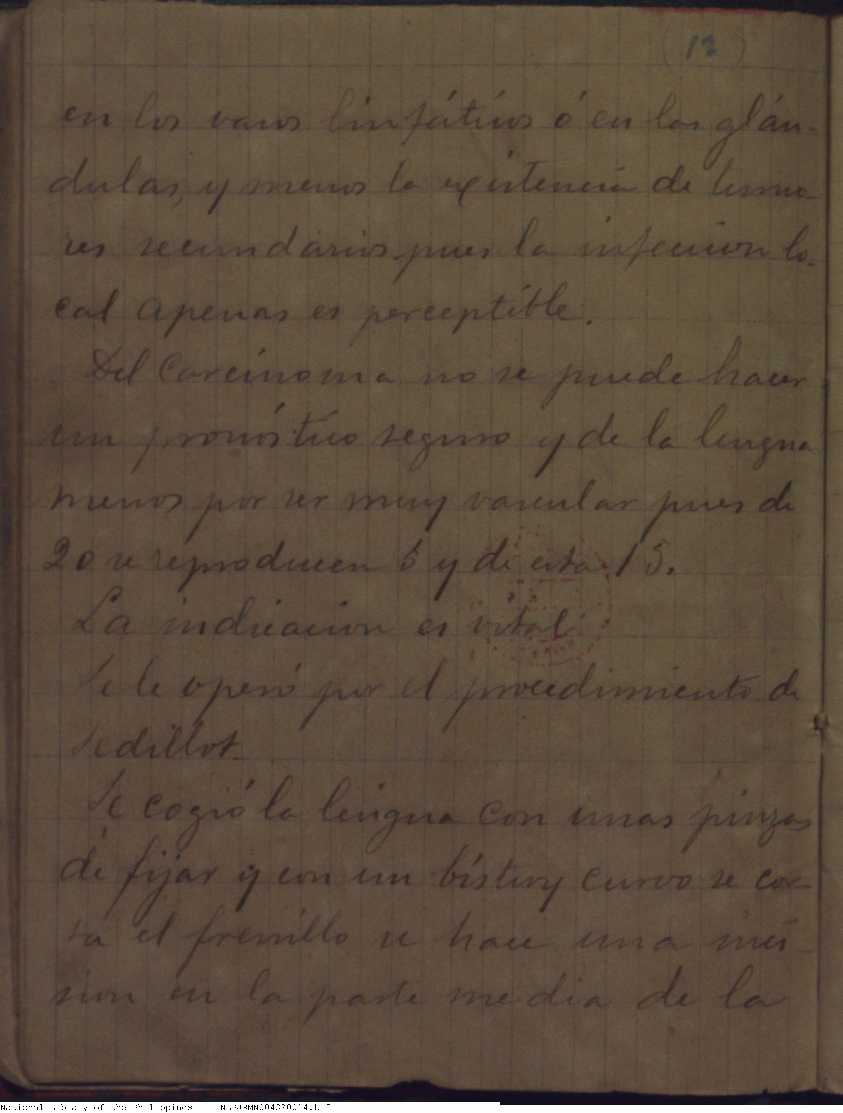 (12)
en los vasos linfáticos ó en las glán-
dulas, y menos la existencia de tumo-
res secundarios pues la infeccion lo-
cal apenas es perceptible.
Del Carcinoma no se puede hacer
un pronóstico seguro y de la lengua
menos por ser muy vascular pues de
20 se reproducen 5 y de esta 15.
La indicacion es vital
Se le operó por el procedimiento de
Sedillot.
Se cogió la lengua con unas pinzas
de fijar y con un bístury curvo se cor-
ta el frenillo se hace una inci-
sion en la parte media de la
National Library of the Philippines